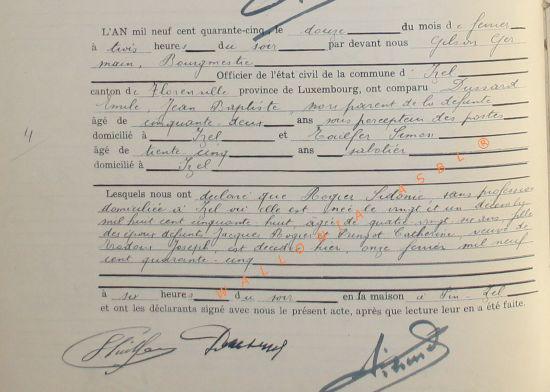 L'AN mil neuf cent quarante-cinq, le douze du mois de février
à trois heures du soir par devant nous Gilson Ger
main, Bourgmestre
Officier de l'état civil de la commune d' Izel
canton de Florenville province de Luxembourg, ont comparu Dussard
Emile, Jean Baptiste, non parent de la défunte
âgé de cinquante deux ans sous percepteur des postes
domicilié à Izel et Toulfer Simon
âgé de trente cinq ans sabotier
domicilié à Izel
Lesquels nous ont déclaré que Rogier Sidonie, sans profession
domiciliée à Izel où elle est née le vingt et un décembre
mil huit cent cinquante huit, âgée de quatre vingt six ans, fille
des époux défunts Jacques Rogier & Catherine, veuve de
Joseph, est décédée hier, onze février mil neuf
cent quarante-cinq
à six heures du soir en la maison à Pin-Izel
et ont les déclarants signé avec nous le présent acte, après que lecture leur en a été faite.
WALLONIA ASBL ®
4